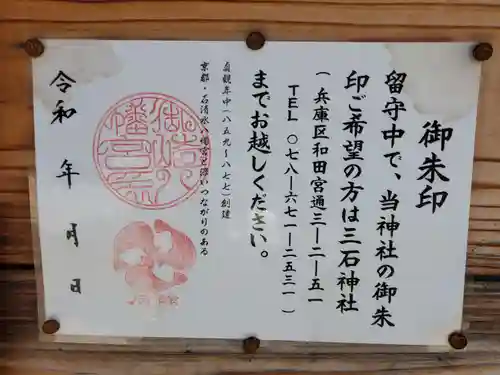 御朱印
留守中で、当神社の御朱
印ご希望の方は三石神社
(兵庫区和田宮通三―二―五一
TEL 〇七八―六七一―二五三一)
までお越しください。
貞観年中(八五九~八七七)創建
京都・石清水八幡宮と深いつながりのある
令和 年 月 日